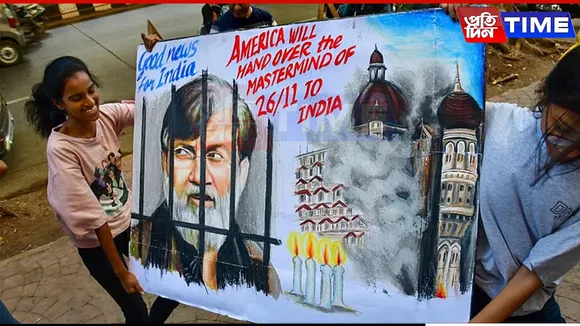 Good news
for India
AMERICA WILL
HAND OVER the
MASTERMIND OF
26/11 TO
INDIA
প্রতিদিন TIME